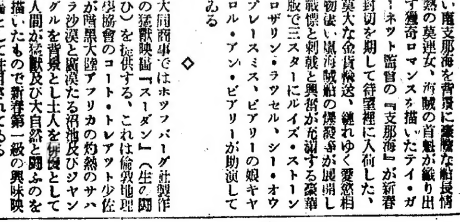 い魔支那海を背景に豪膽な船長情
熱の莫連女、海賊の首魁が織り出
す獵奇ロマンスを描いたテイ・ガ
ーネット監督の『支那海』が新春
封切を期して待望裡に入荷した、
莫大な金貨輸送、縺れゆく愛慾相
物凄い嵐海賊船の爆發等が展開し
戰慄と刺戟と興奮が充滿する豪華
版で三スターにルイズ・ストーン
ロザリン・ラツセル、シー・オウ
ブレースミス、ビアリーの娘キヤ
ロル・アン・ビアリーが助演して
ゐる
◇
大同商事ではホツフバーグ社製作
の猛獸映畫『スーダン』(生の鬪
ひ)を提供する、これは倫敦地理
學協會のコート・トレアツト少佐
が暗黑大陸アフリカの灼熱のサハ
ラ沙漠と廣漠たる沼池及びジヤン
グルを背景とし土人を俳優として
人間が猛獸及び大自然と鬪ふのを
描いたもので新春第一級の興味映
畫として注目されてゐる